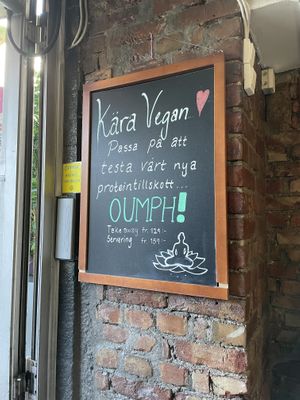 Kära Vegan
Passa på att
testa vårt nya
proteintillskott...
OUMPH!
Take away fr. 129:-
Servering fr. 159:-